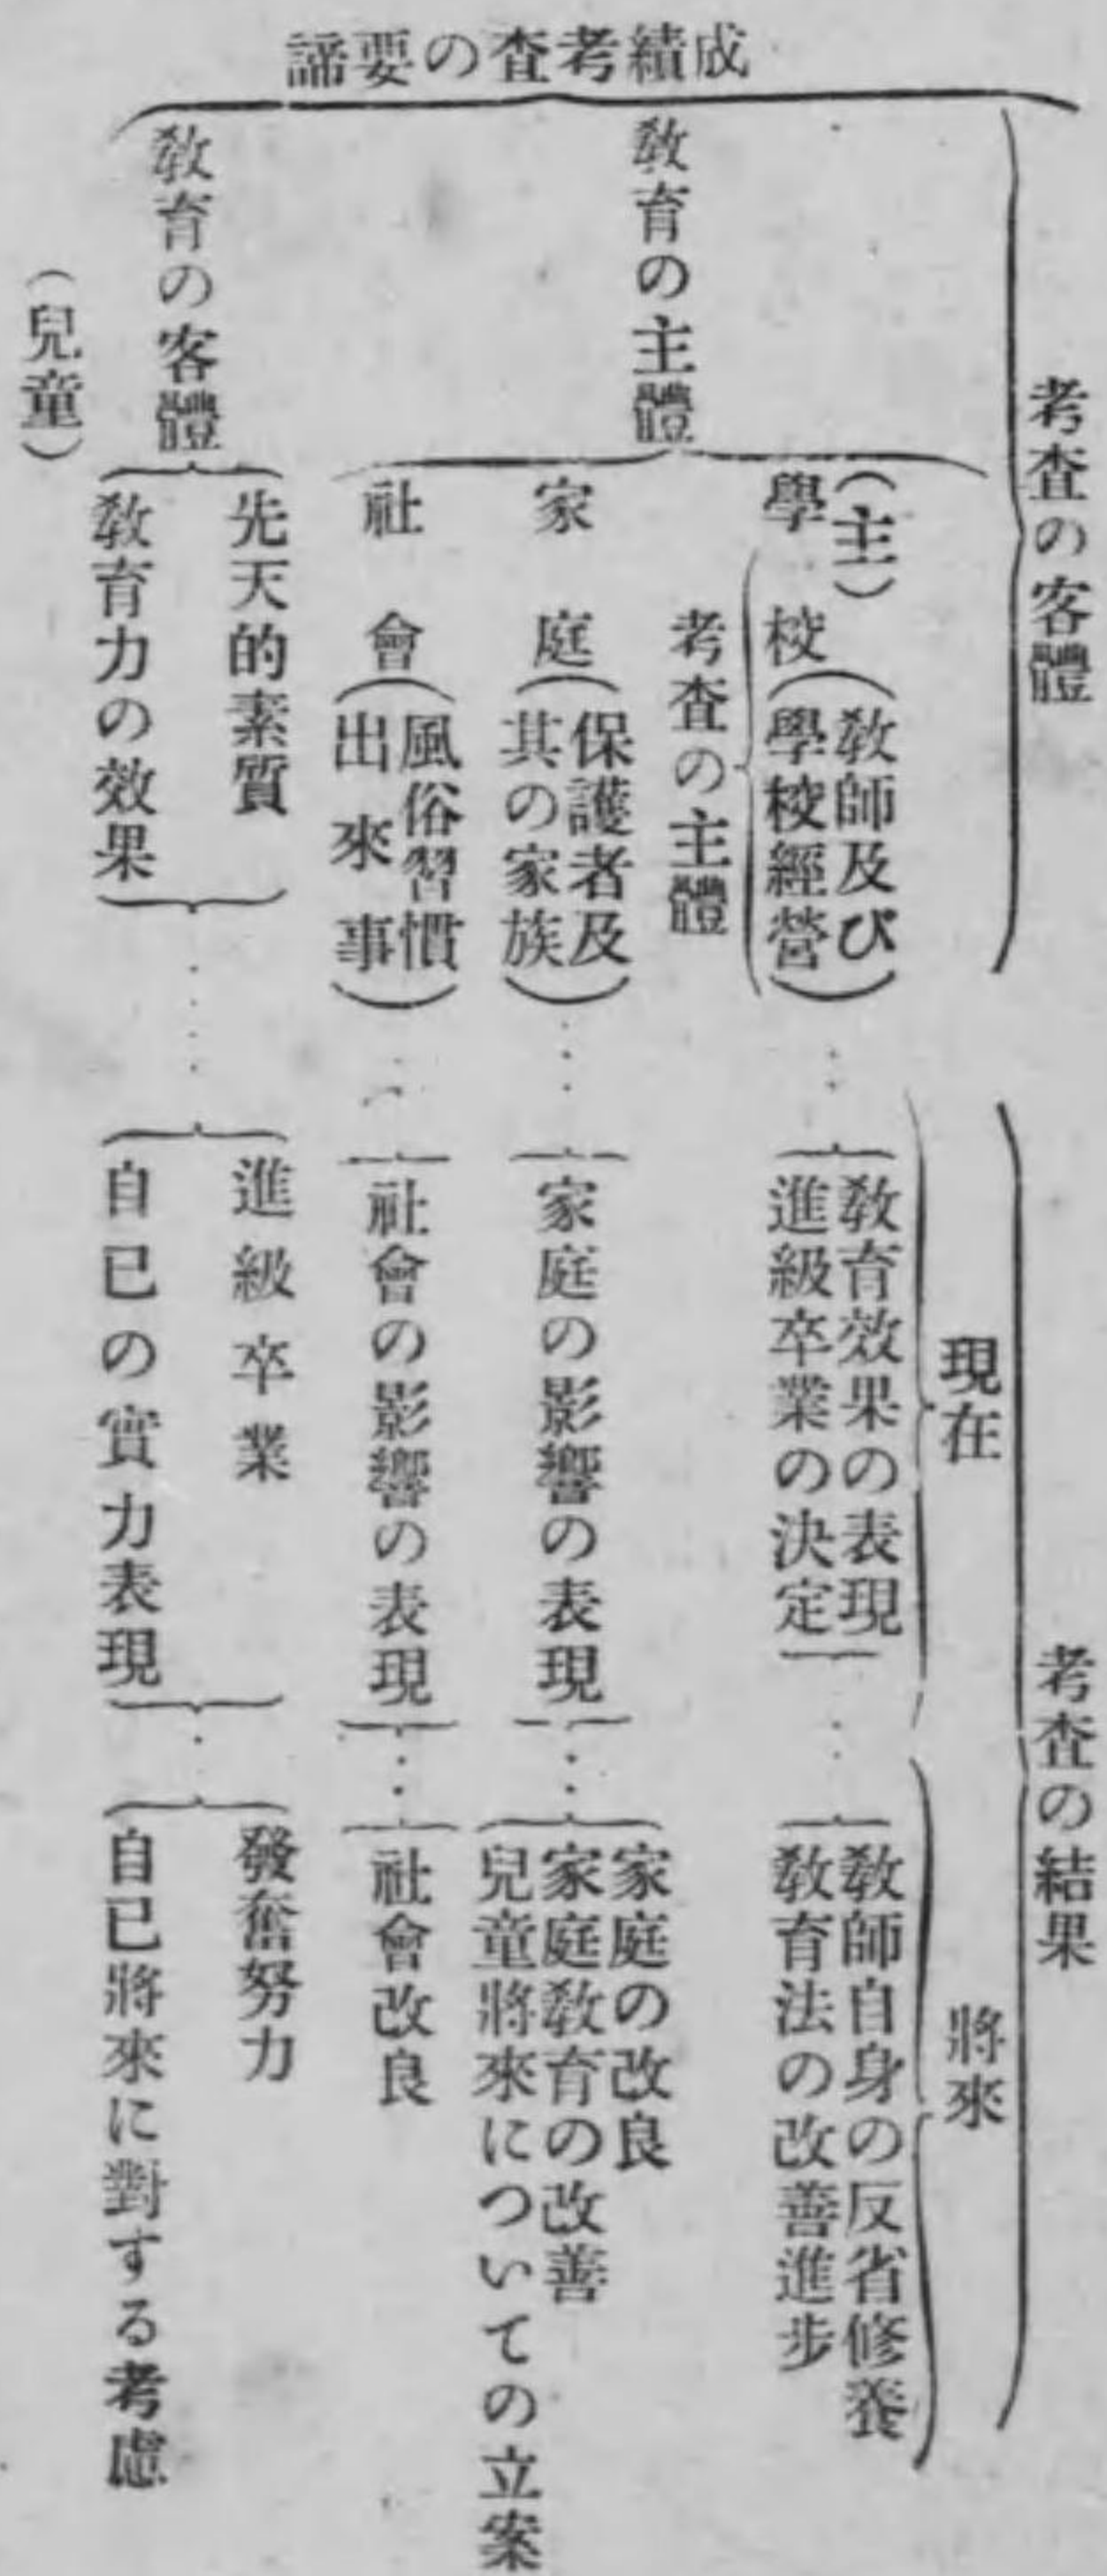 成績考査の要諦
考査の客體
考査の結果
現在
將來
教育の主體
(主)
學校(教師及び
學校經營)
考査の主體
教育效果の表現
進級卒業の決定
教師自身の反省修養
教育法の改善進步
家庭(保護者及
其の家族)
家庭の影響の表現
家庭の改良
家庭教育の改善
兒童將來についての立案
社會(風俗習慣
出來事)
社會の影響の表現
社會改良
教育の客體
(兒童)
先天的素質
教育力の效果
進級卒業
自已の實力表現
發奮努力
自已將來に對する考慮